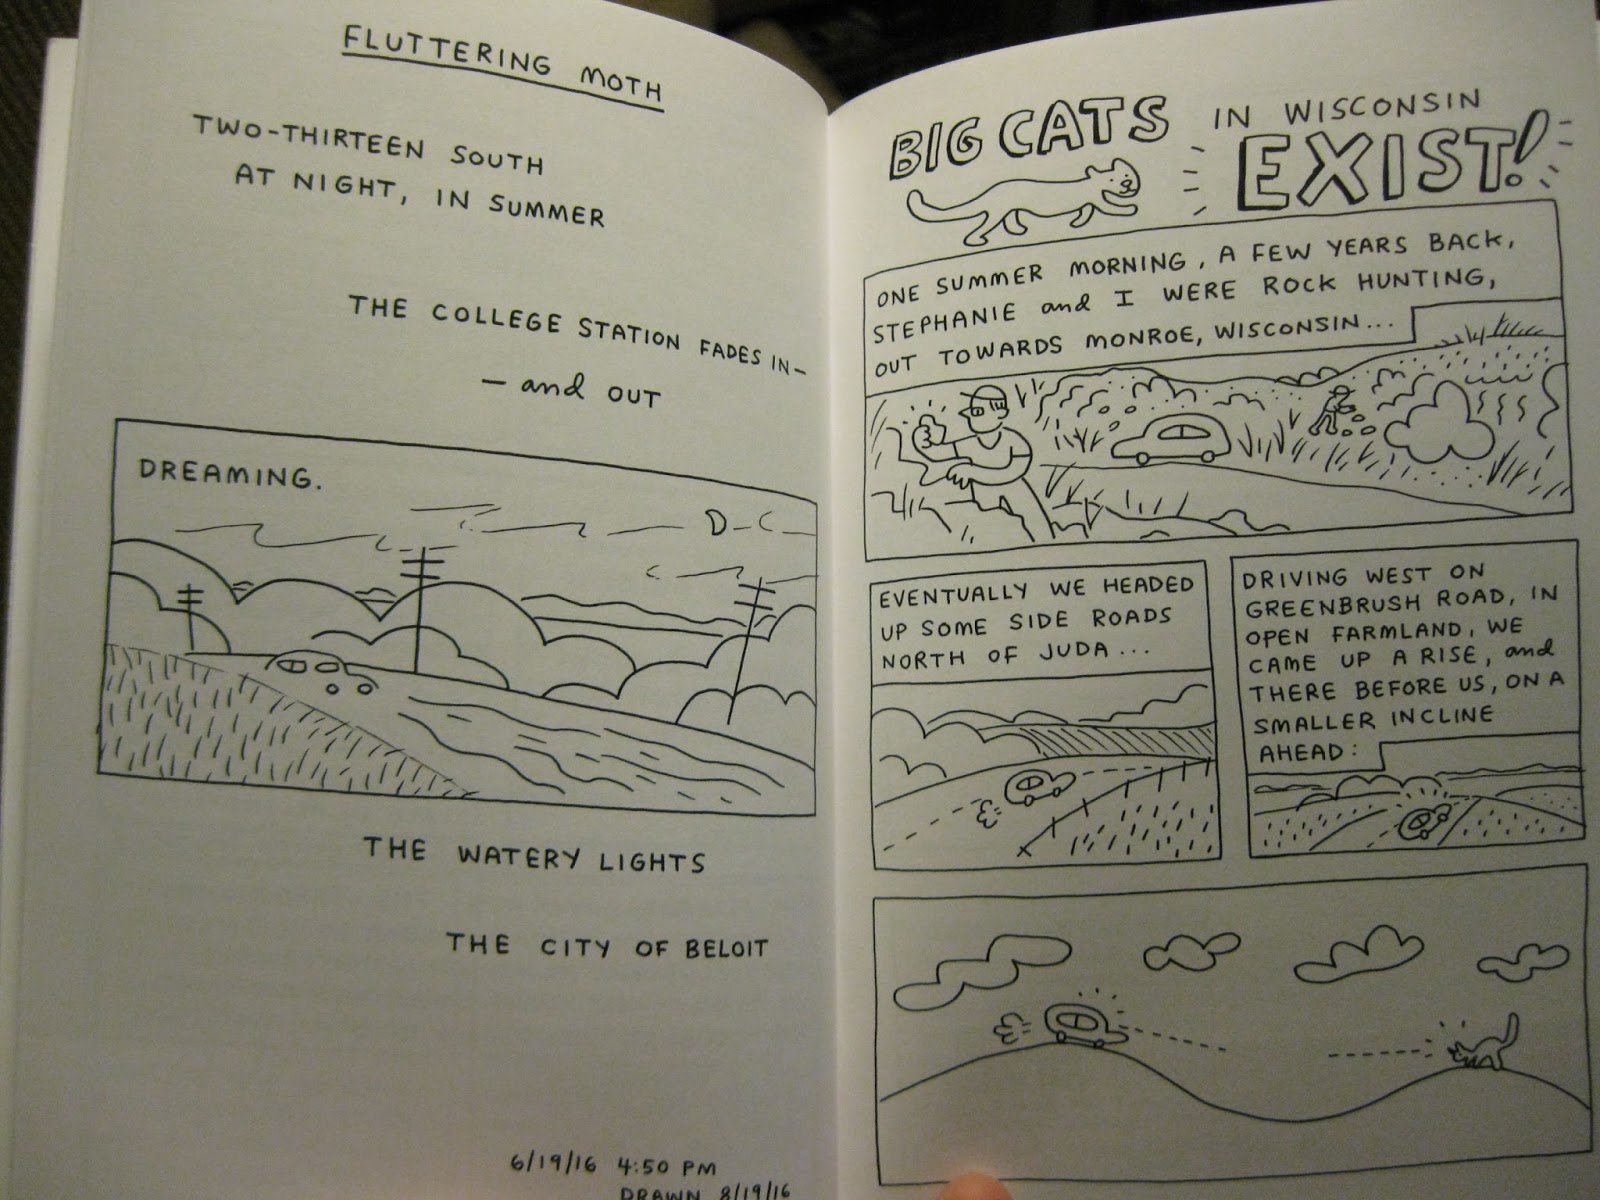 FLUTTERING MOTH
TWO-THIRTEEN SOUTH
AT NIGHT, IN SUMMER
THE COLLEGE STATION FADES IN—
— and OUT
DREAMING.
THE WATERY LIGHTS
THE CITY OF BELOIT
6/19/16 4:50 PM
DRAWN 8/19/16
BIG CATS IN WISCONSIN
EXIST!
ONE SUMMER MORNING, A FEW YEARS BACK,
STEPHANIE and I WERE ROCK HUNTING,
OUT TOWARDS MONROE, WISCONSIN...
EVENTUALLY WE HEADED
UP SOME SIDE ROADS
NORTH OF JUDA...
DRIVING WEST ON
GREENBRUSH ROAD, IN
OPEN FARMLAND, WE
CAME UP A RISE, and
THERE BEFORE US, ON A
SMALLER INCLINE
AHEAD: